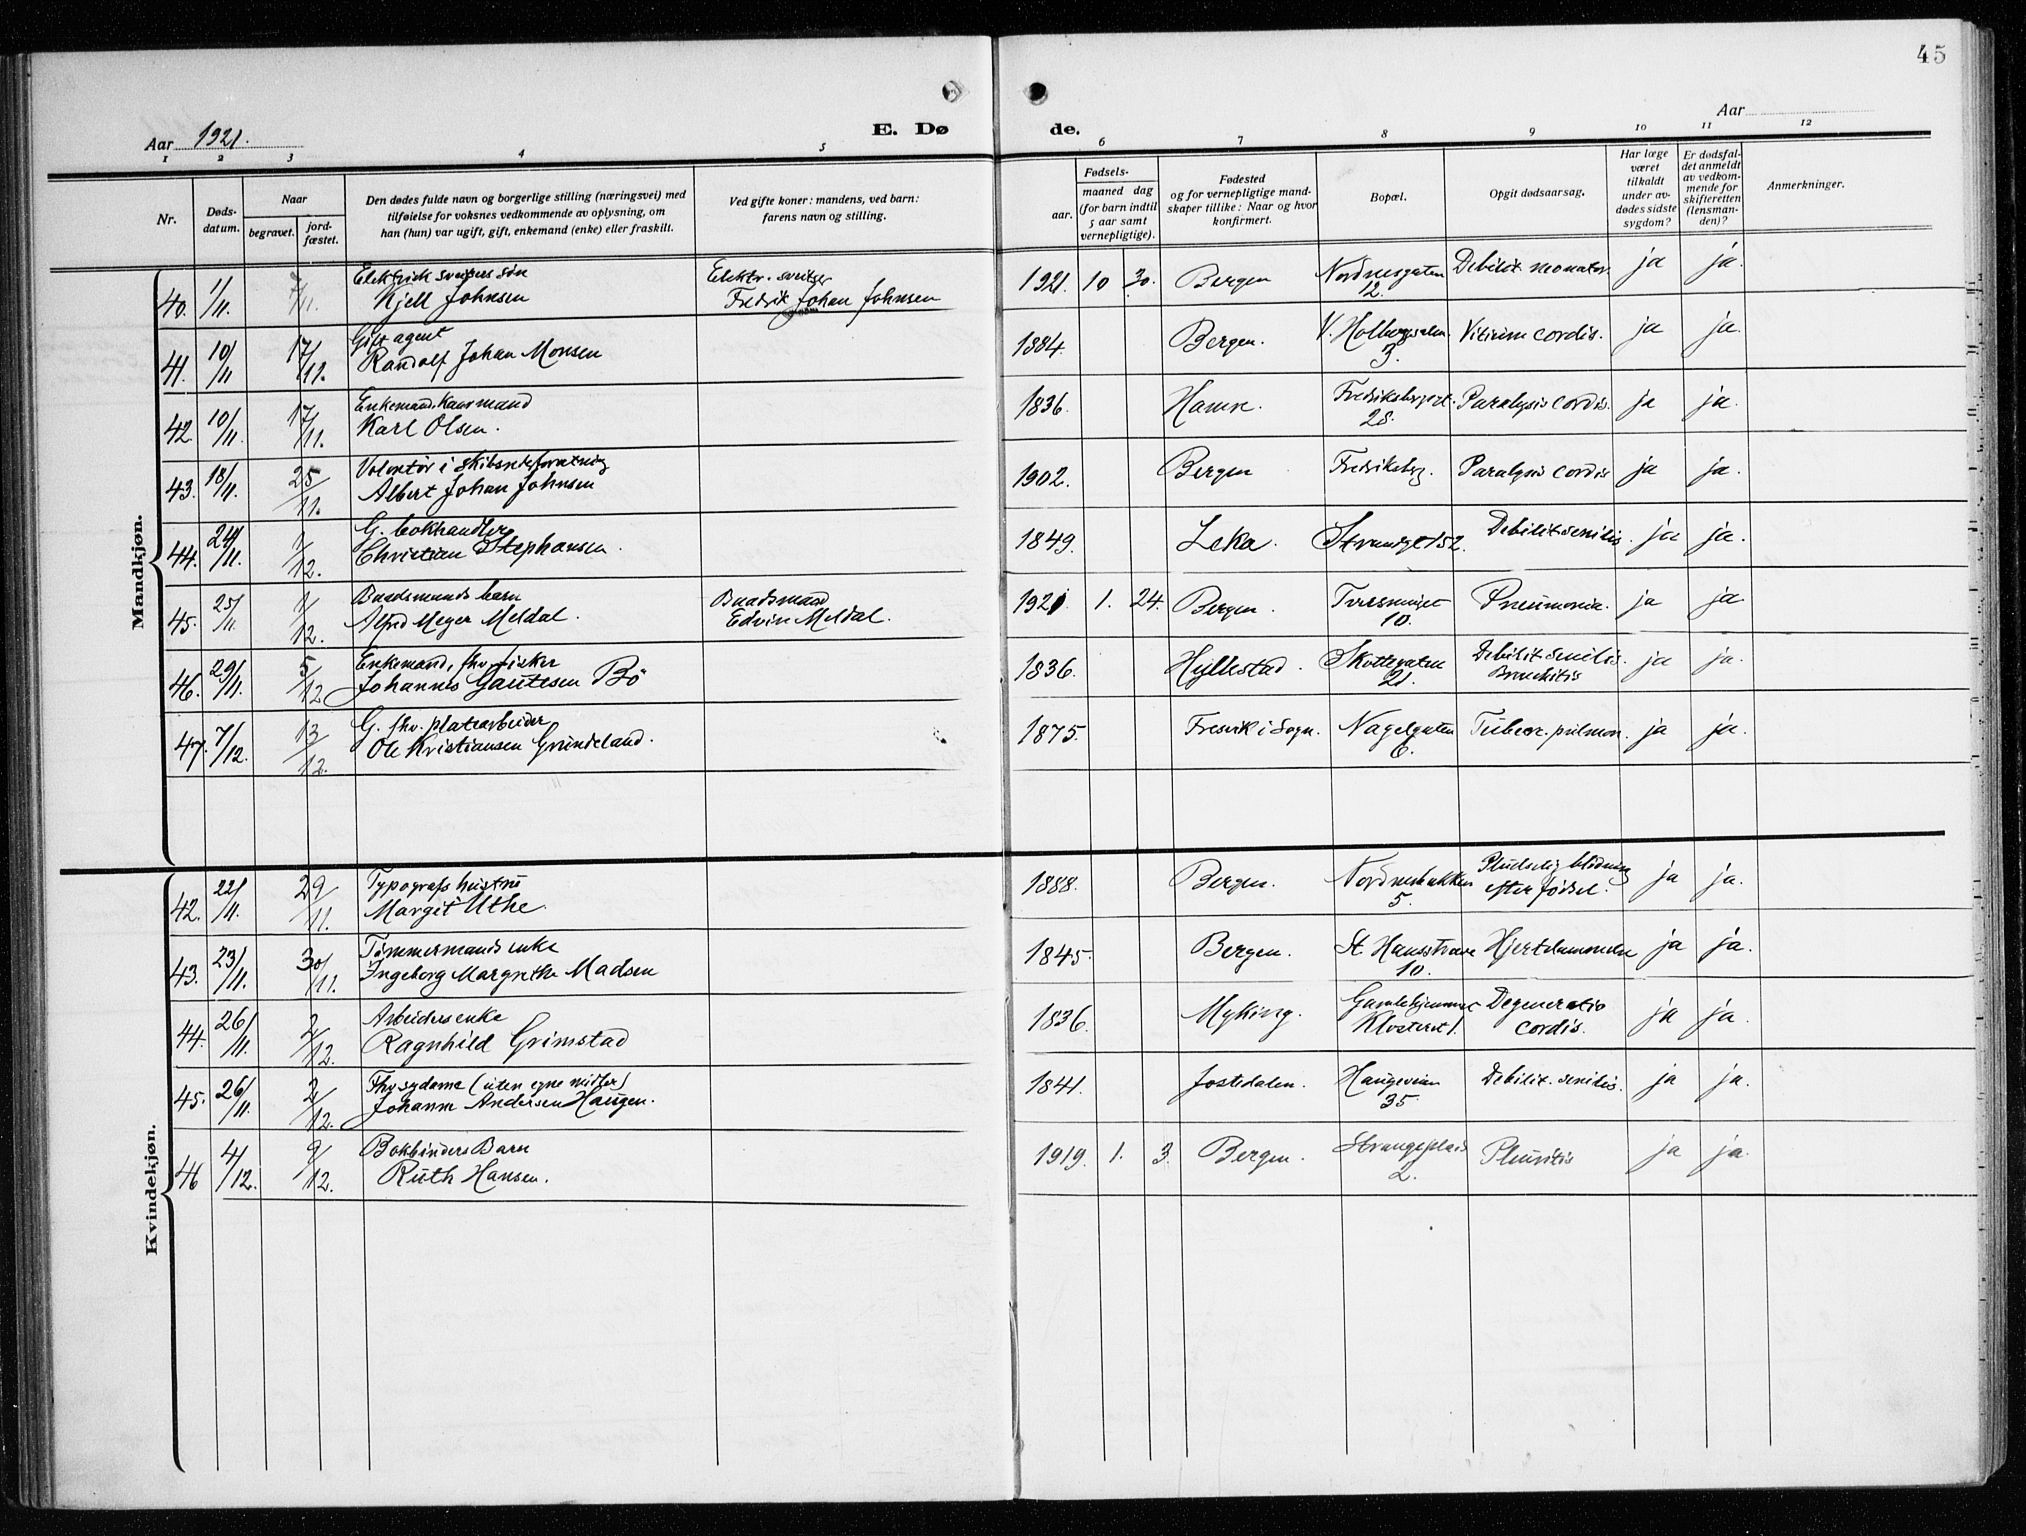 45
Aar 1921.
E. Dø
de.
Aar
1 2 3 4 5
6 7 8 9 10 11 12
Nr.
Døds-
datum.
Naar
begravet.
jord-
fæstet.
Den dødes fulde navn og borgerlige stilling (næringsvei) med
tilføielse for voksnes vedkommende av oplysning, om
han (hun) var ugift, gift, enkemand (enke) eller fraskilt.
Ved gifte koner: mandens, ved barn:
farens navn og stilling.
Fødsels-
aar.
maaned dag
(for barn indtil
5 aar samt
vernepligtige).
Fødested
og for vernepligtige mand-
skaper tillike: Naar og hvor
konfirmert.
Bopæl.
Opgit dødsaarsag.
Har læge
været
tilkaldt
under av-
dødes sidste
sygdom?
Er dødsfal-
det anmeldt
av vedkom-
mende for
skifteretten
(lensman-
den)?
Anmerkninger.
Mandkjøn.
40. 1/11. 7/11. Elektrisk sveisers søn
Kjell Johnsen
Elektr. sveiser
Fredrik Johan Johnsen
1921. 10 30. Bergen Nordnesgaten
12. Debilit. neonator. ja ja.
41. 10/11 17/11. Gift agent
Randolf Johan Monsen
1884. Bergen. V. Holbergsalm.
3. Vitium cordis. ja ja.
42. 10/11. 17/11. Enkemand. Kaarmand
Karl Olsen.
1836. Hamre. Fredriksbergt.
28. Paralysis cordis. ja ja.
43. 18/11. 25/11. Volontør i skibsrederforretning
Albert Johan Johnsen
1902. Bergen Fredriksbg. Paralysis cordis ja ja.
44. 24/11. 1/12. G. bokhandler
Christian Stephansen.
1849. Leka. Strandgt 152. Debilit. senilis. ja ja.
45. 25/11. 1/12. Baadsmands barn
Alfred Meyer Meldal.
Baadsmand
Edvin Meldal.
1921. 1. 24. Bergen.
10. Pneumonia. ja ja
46. 29/11. 5/12 Enkemand, fhv. fisker
Johannes Gautesen Bö
1836. Hyllestad. Skottegaten
21. Debilit. senilis.
Bronchitis ja ja.
47. 7/12. 13/12. G. fhv. platearbeider
Ole Kristiansen Grindeland.
1875. Fresvik i Sogn. Nagelgaten
6. Tuberc. pulmon. ja ja.
Kvindekjøn.
42. 22/11. 29/11. Typografs hustru
Margit Uthe.
1888. Bergen. Nordnesbakken
5. Pludselig blødning
efter fødsel. ja ja.
43. 23/11. 30/11. Tømmermands enke
Ingeborg Margrethe Madsen
1845. Bergen. St. Hansstræde
10. Hjertelammelse ja ja.
44. 26/11. 2/12. Arbeiders enke
Ragnhild Grimstad
1836. Myking. Gamlehjemmet
Klosteret 1. Degeneratio
cordis. ja ja.
45. 26/11. 2/12. Fhv sydame (uten egne midler)
Johanne Andersen Haugen.
1841. Jostedalen. Haugeveien
35. Debilit. senilis. ja ja.
46 4/12. 9/12. Bokbinders Barn
Ruth Hansen.
1919. 1. 3. Bergen. Strangeplads
2. Pleuritis ja ja.